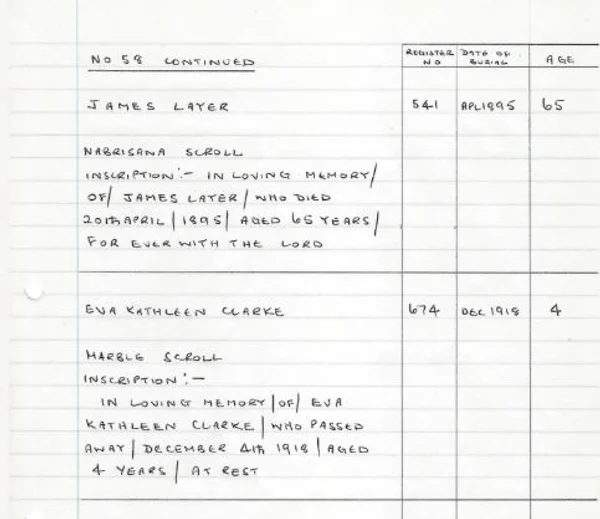 NO 58 CONTINUED
REGISTER NO DATE OF BURIAL AGE
JAMES LAYER 541 APL 1895 65
NABRISANA SCROLL
INSCRIPTION:- IN LOVING MEMORY/
OF/ JAMES LAYER/ WHO DIED
20th APRIL/ 1895/ AGED 65 YEARS/
FOR EVER WITH THE LORD
EVA KATHLEEN CLARKE 674 DEC 1918 4
MARBLE SCROLL
INSCRIPTION:-
IN LOVING MEMORY/ OF/ EVA
KATHLEEN CLARKE/ WHO PASSED
AWAY/ DECEMBER 4th 1918/ AGED
4 YEARS/ AT REST